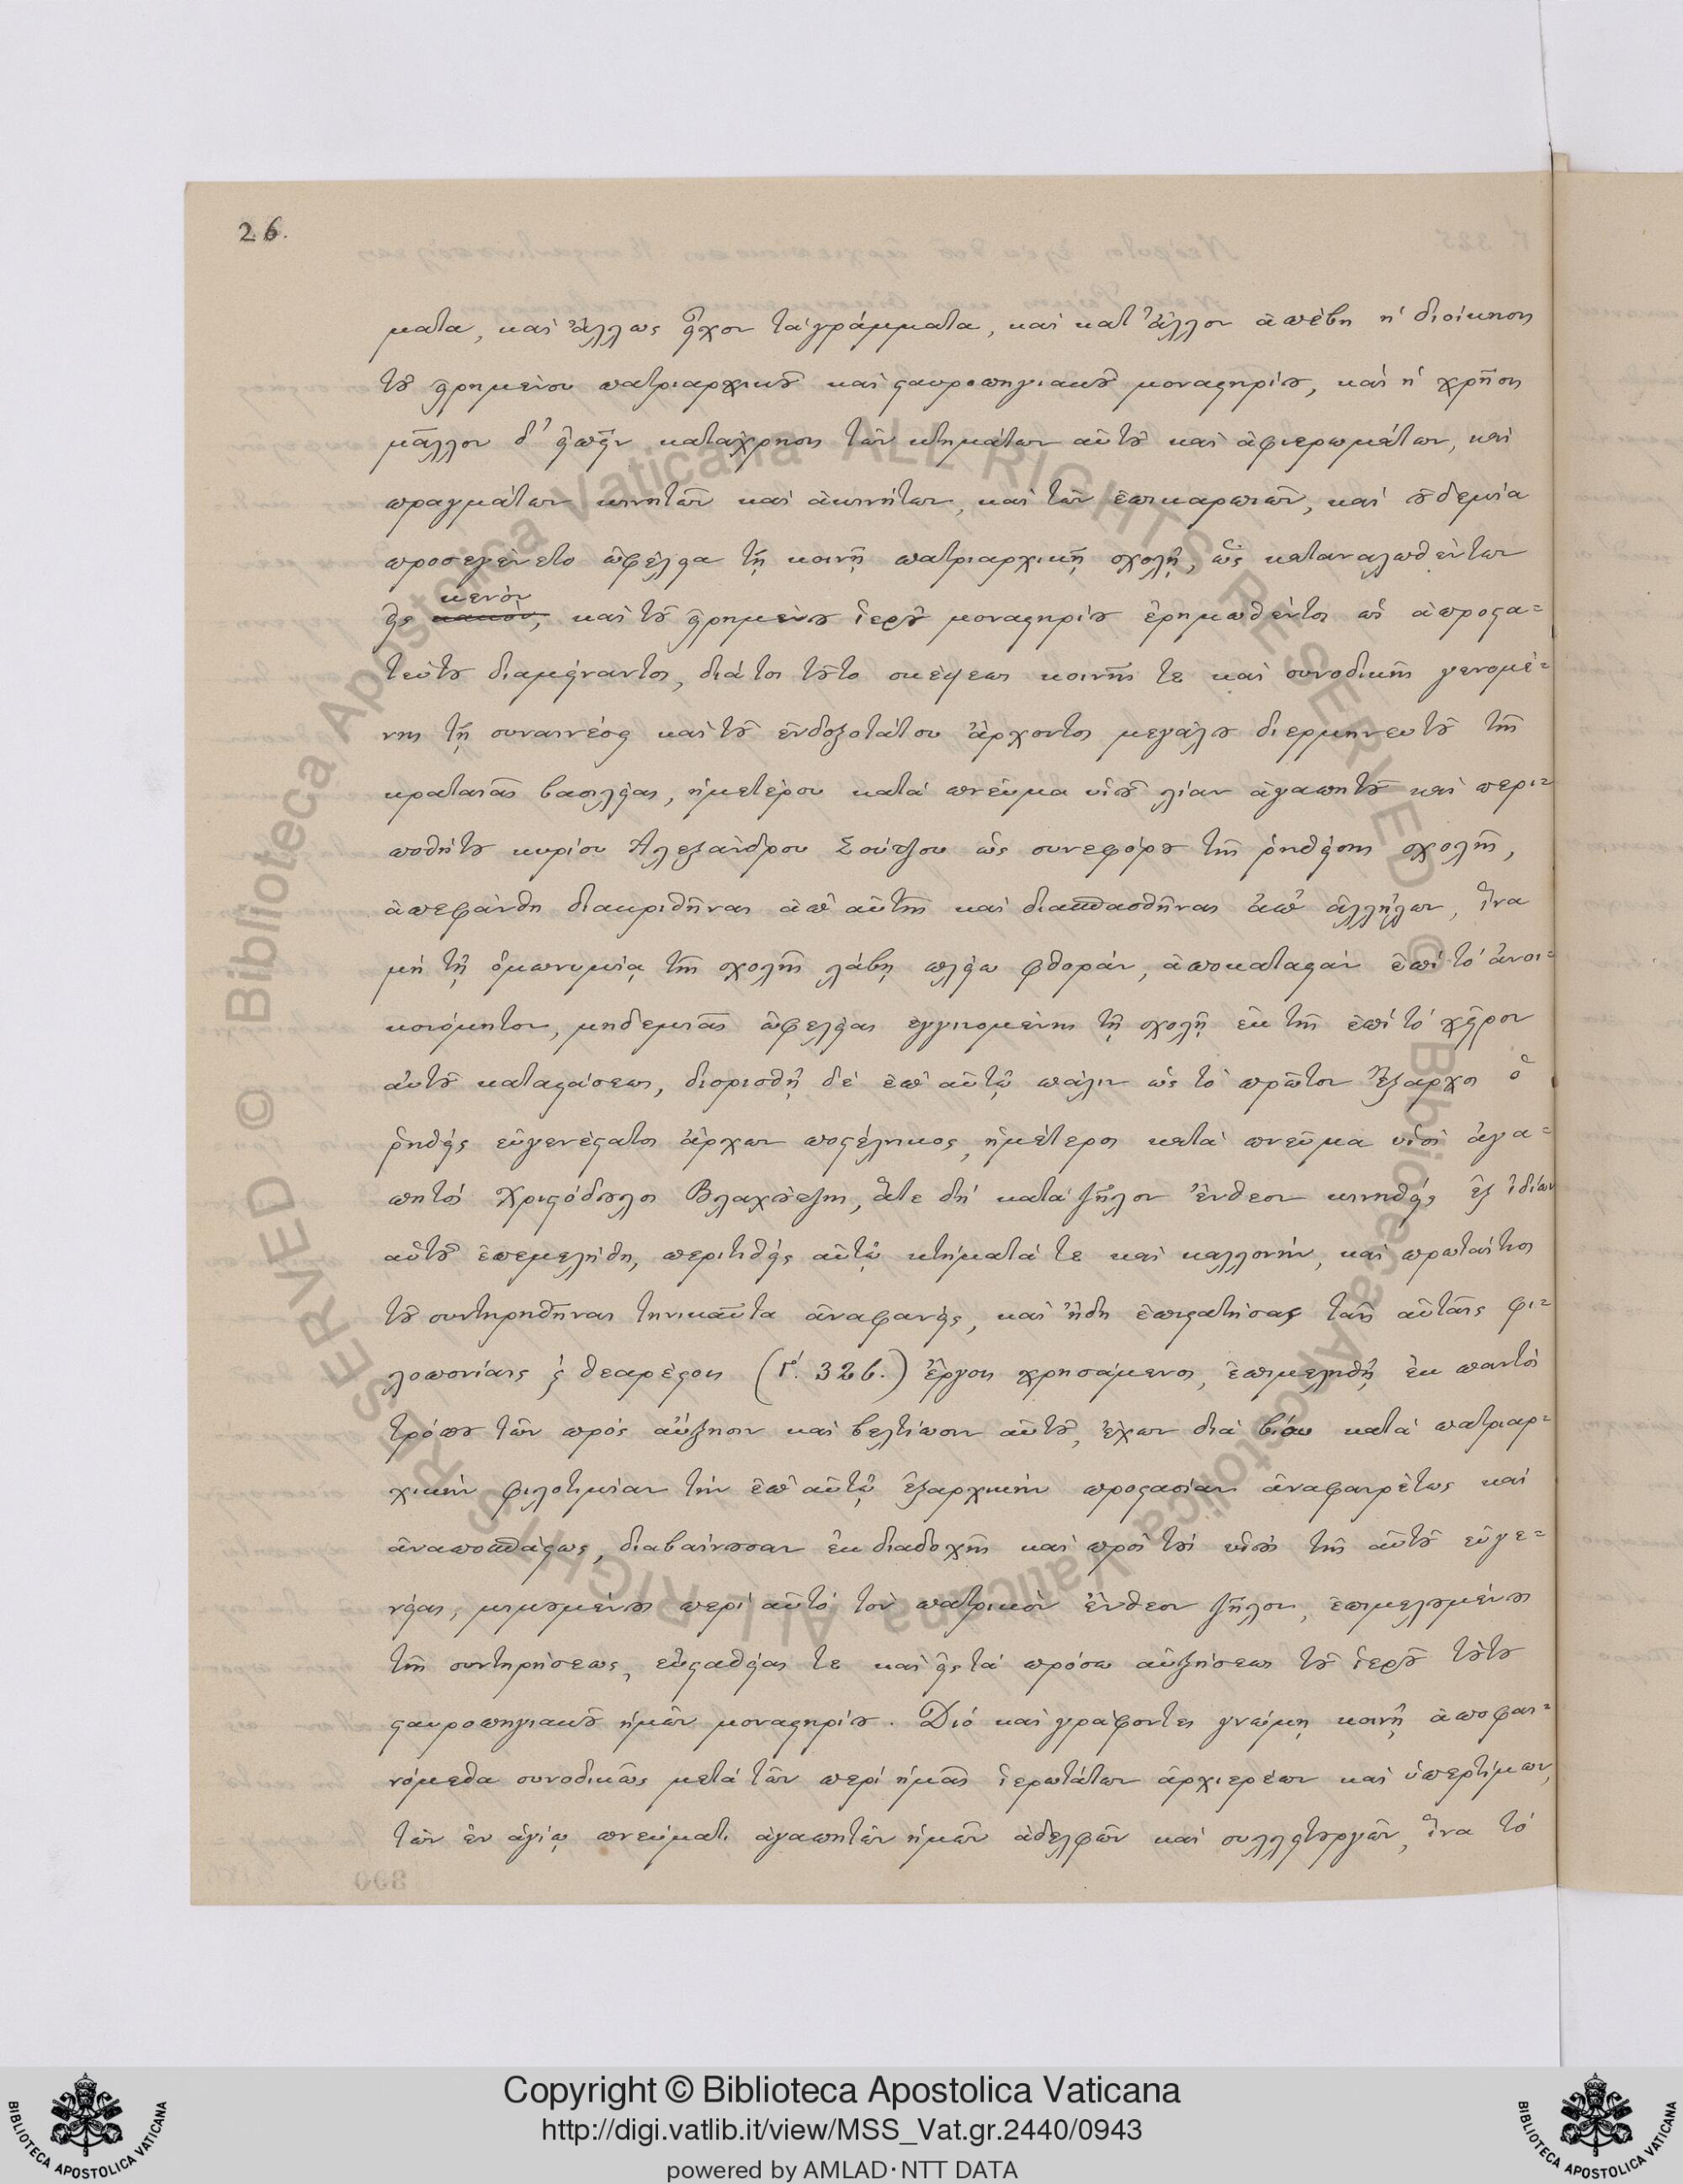 26.
ματα, καὶ ἄλλως εἶχον τὰ γράμματα, καὶ κατ' ἄλλον ἀπέβη ἡ διοίκησις
τοῦ εἰρημένου πατριαρχικοῦ καὶ σταυροπηγιακοῦ μοναστηρίου, καὶ ἡ χρῆσις
μᾶλλον δ' εἰπεῖν κατάχρησις τῶν κτημάτων αὐτοῦ καὶ ἀφιερωμάτων, καὶ
πραγμάτων κινητῶν καὶ ἀκινήτων, καὶ τῶν ἐπικαρπιῶν, καὶ οὐδεμία
προσεγένετο ὠφέλεια τῇ κοινῇ πατριαρχικῇ σχολῇ, ὡς καταναλωθέντων
κενὸν
εἰς κακὸν, καὶ τοῦ εἰρημένου ἱεροῦ μοναστηρίου ἐρημωθέντος ὡς ἀπροστα=
τεύτου διαμείναντος, διά τοι τοῦτο σκέψεως κοινῆς τε καὶ συνοδικῆς γενομέ=
νης τῇ συναινέσει καὶ τοῦ ἐνδοξοτάτου ἄρχοντος μεγάλου διερμηνευτοῦ τῆς
κραταιᾶς βασιλείας, ἡμετέρου κατὰ πνεῦμα υἱοῦ λίαν ἀγαπητοῦ καὶ περι=
ποθήτου κυρίου Ἀλεξάνδρου Σούτζου ὡς συνεφόρου τῆς ῥηθείσης σχολῆς,
ἀπεφάνθη διακριθῆναι ἀπ' αὐτῆς καὶ διασπασθῆναι ἀπ' ἀλλήλων, ἵνα
μὴ τῇ ὁμωνυμίᾳ τῆς σχολῆς λάβῃ πλείω φθορὰν, ἀποκαταστὰν ἐπὶ τὸ ἀνοι=
κονόμητον, μηδεμιᾶς ὠφελείας ἐγγινομένης τῇ σχολῇ ἐκ τῆς ἐπὶ τὸ χεῖρον
αὐτοῦ καταστάσεως, διορισθῇ δὲ ἐπ' αὐτῷ πάλιν ὡς τὸ πρῶτον Ἔξαρχος ὁ
ῥηθεὶς εὐγενέστατος ἄρχων ποστέλνικος, ἡμέτερος κατὰ πνεῦμα υἱὸς ἀγα=
πητὸς Χριστόδουλος Βλαχούτζης, ἅτε δὴ κατὰ ζῆλον ἔνθεον κινηθεὶς ἐξ ἰδίων
αὐτοῦ ἐπεμελήθη, περιτιθεὶς αὐτῷ κτήματά τε καὶ καλλονὴν, καὶ πρωταίτιος
τοῦ συντηρηθῆναι τηνικαῦτα ἀναφανεὶς, καὶ ἤδη ἐπιστατήσας ταῖς αὐταῖς φι=
λοπονίαις καὶ θεαρέστοις (Γ. 326.) ἔργοις χρησάμενος, ἐπιμεληθῇ ἐκ παντὸς
τρόπου τῶν πρὸς αὔξησιν καὶ βελτίωσιν αὐτοῦ, ἔχων διὰ βίου κατὰ πατριαρ=
χικὴν φιλοτιμίαν τὴν ἐπ' αὐτῷ ἐξαρχικὴν προστασίαν ἀναφαιρέτως καὶ
ἀναποσπάστως, διαβαίνουσαν ἐκ διαδοχῆς καὶ πρὸς τοὺς υἱοὺς τῆς αὐτοῦ εὐγε=
νείας, μιμουμένους περὶ αὐτὸ τὸν πατρικὸν ἔνθεον ζῆλον, ἐπιμελουμένους
τῆς συντηρήσεως, εὐσταθείας τε καὶ εἰς τὰ πρόσω αὐξήσεως τοῦ ἱεροῦ τούτου
σταυροπηγιακοῦ ἡμῶν μοναστηρίου. Διὸ καὶ γράφοντες γνώμῃ κοινῇ ἀποφαι=
νόμεθα συνοδικῶς μετὰ τῶν περὶ ἡμᾶς ἱερωτάτων ἀρχιερέων καὶ ὑπερτίμων,
τῶν ἐν ἁγίῳ πνεύματι ἀγαπητῶν ἡμῶν ἀδελφῶν καὶ συλλειτουργῶν, ἵνα τὸ
Copyright © Biblioteca Apostolica Vaticana
http://digi.vatlib.it/view/MSS_Vat.gr.2440/0943
powered by AMLAD·NTT DATA
BIBLIOTECA APOSTOLICA VATICANA
BIBLIOTECA APOSTOLICA VATICANA
© Biblioteca Apostolica Vaticana ALL RIGHTS RESERVED © Biblioteca Apostolica Vaticana ALL RIGHTS RESERVED